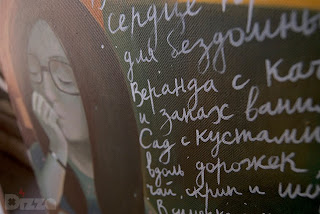 сердце
для бездомны
Веранда с кач
и запах вани
Сад с кустами
вдоль дорожек
чай, скрип и шо